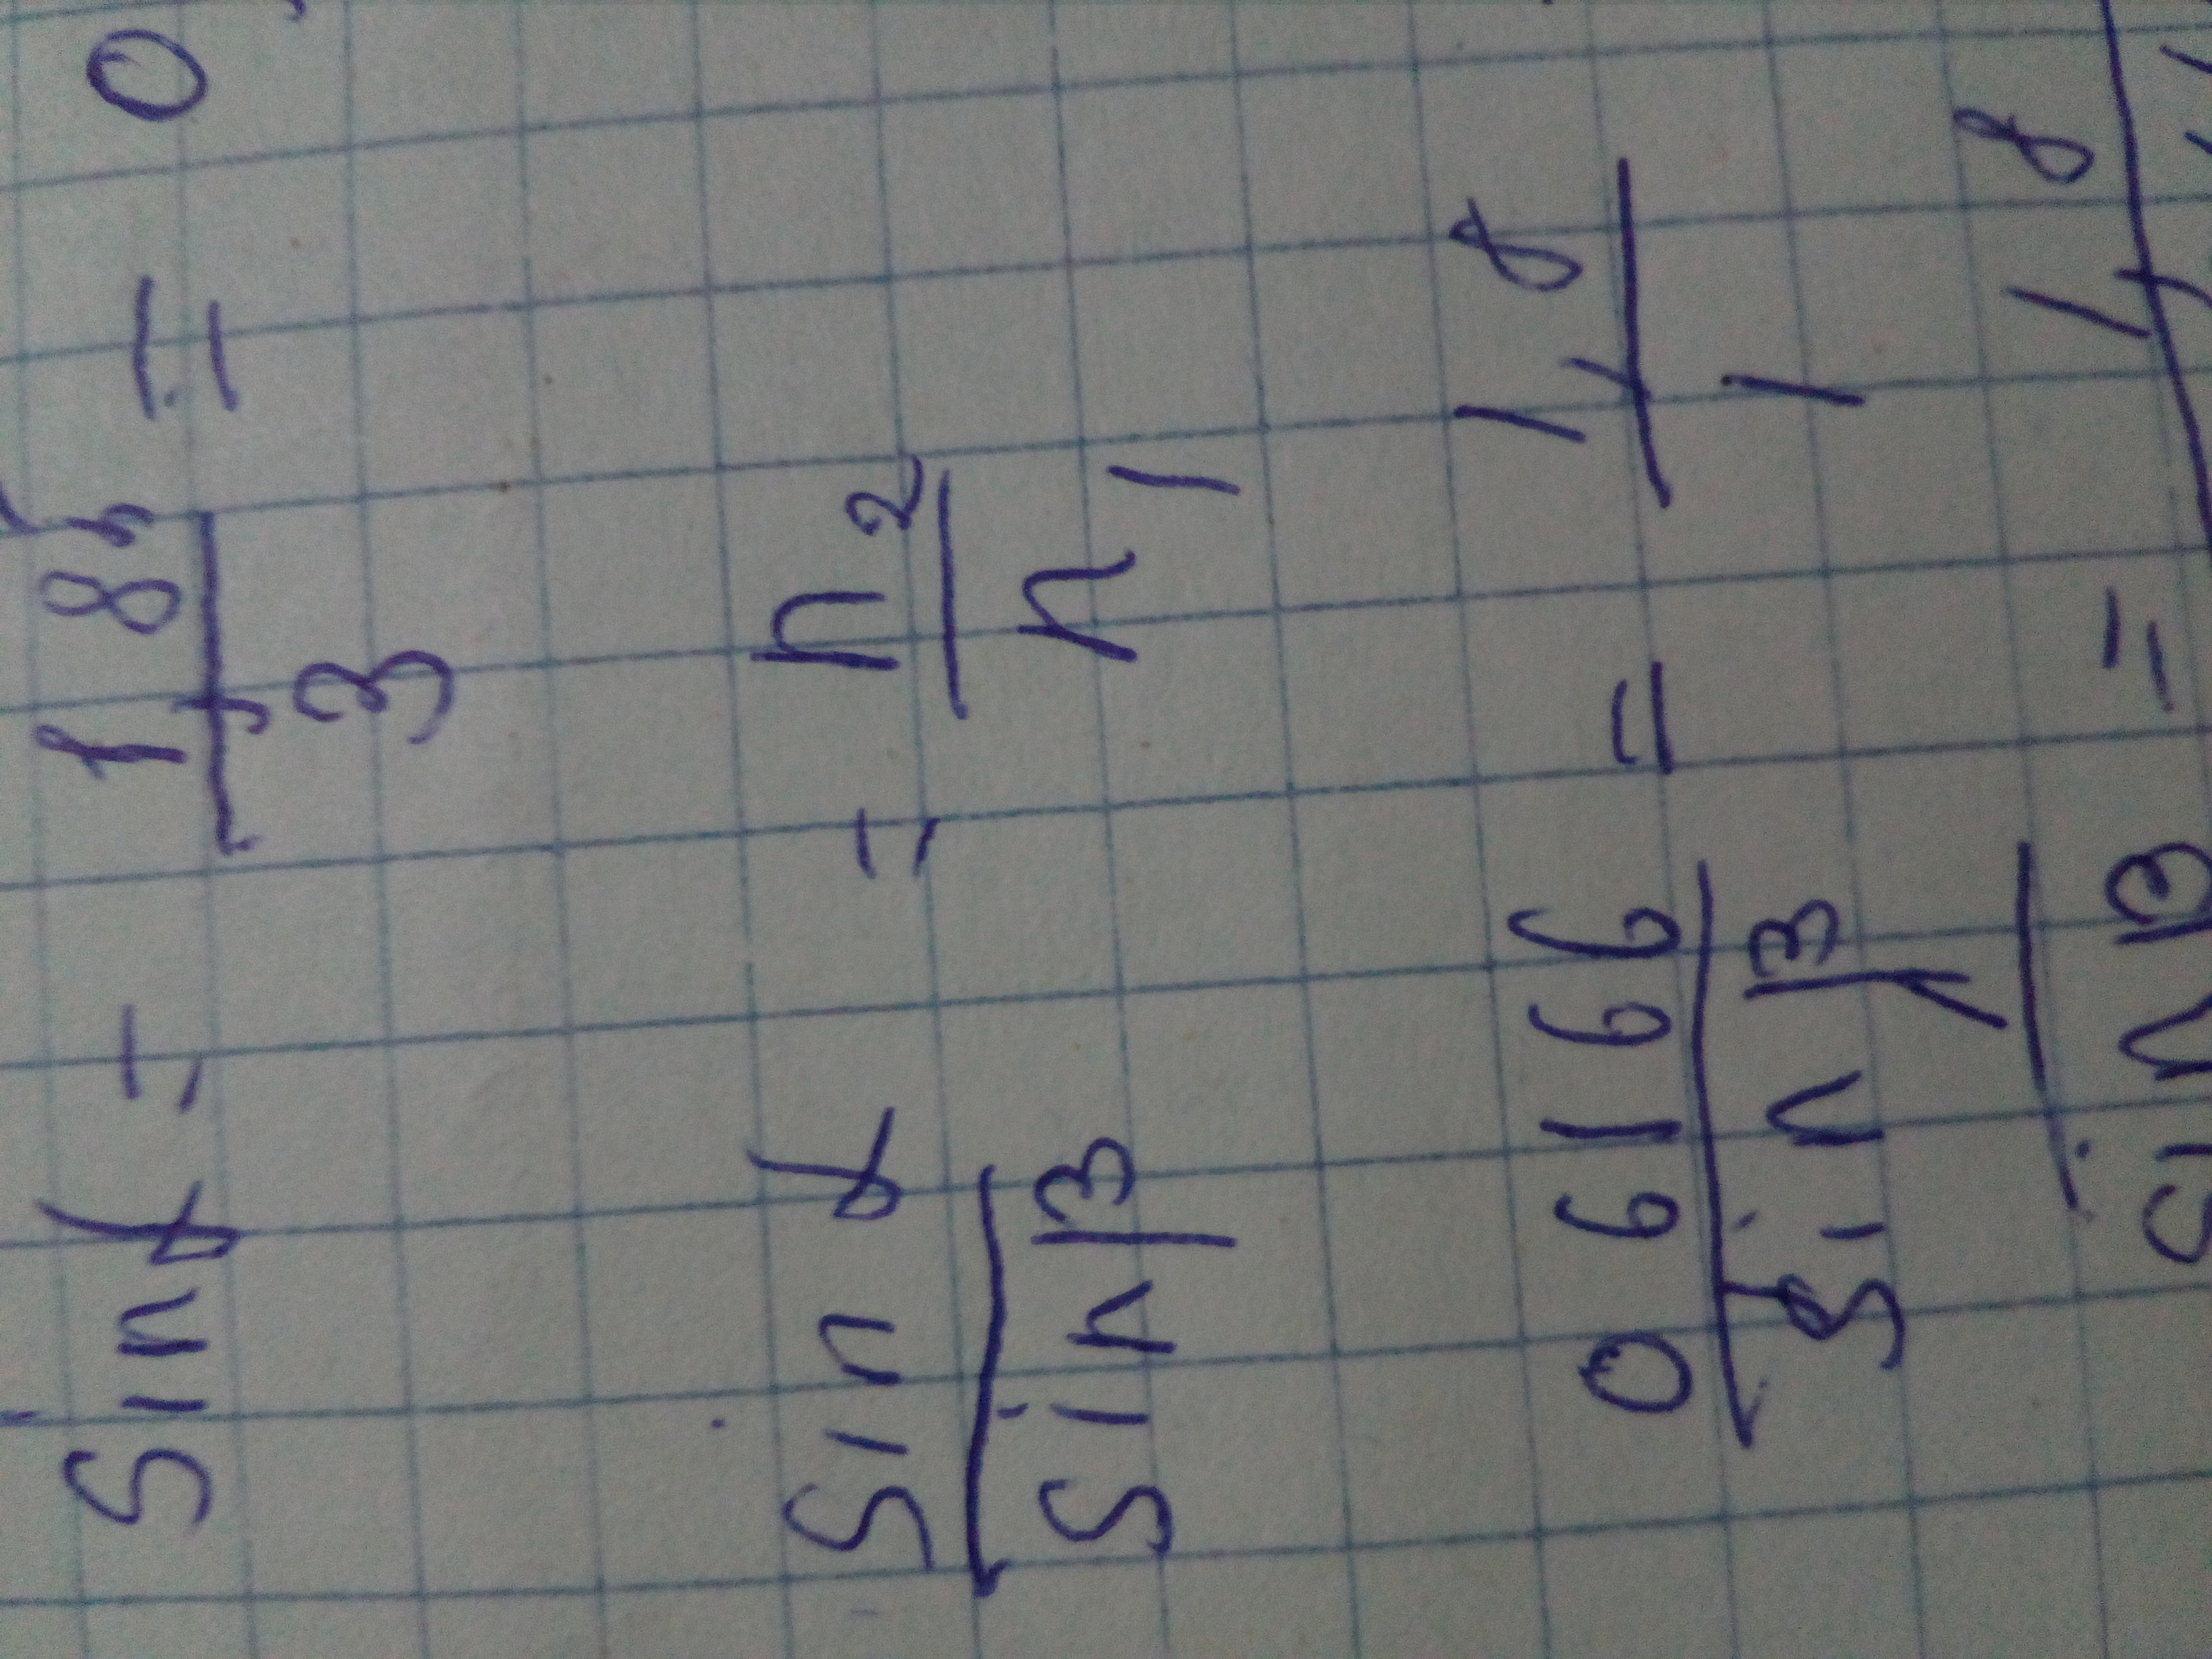 sin α = 1,85/3 = 0,
sin α/sin β = n2/n1
0 6166/sin β = 1,8/1
sin β = 1,8